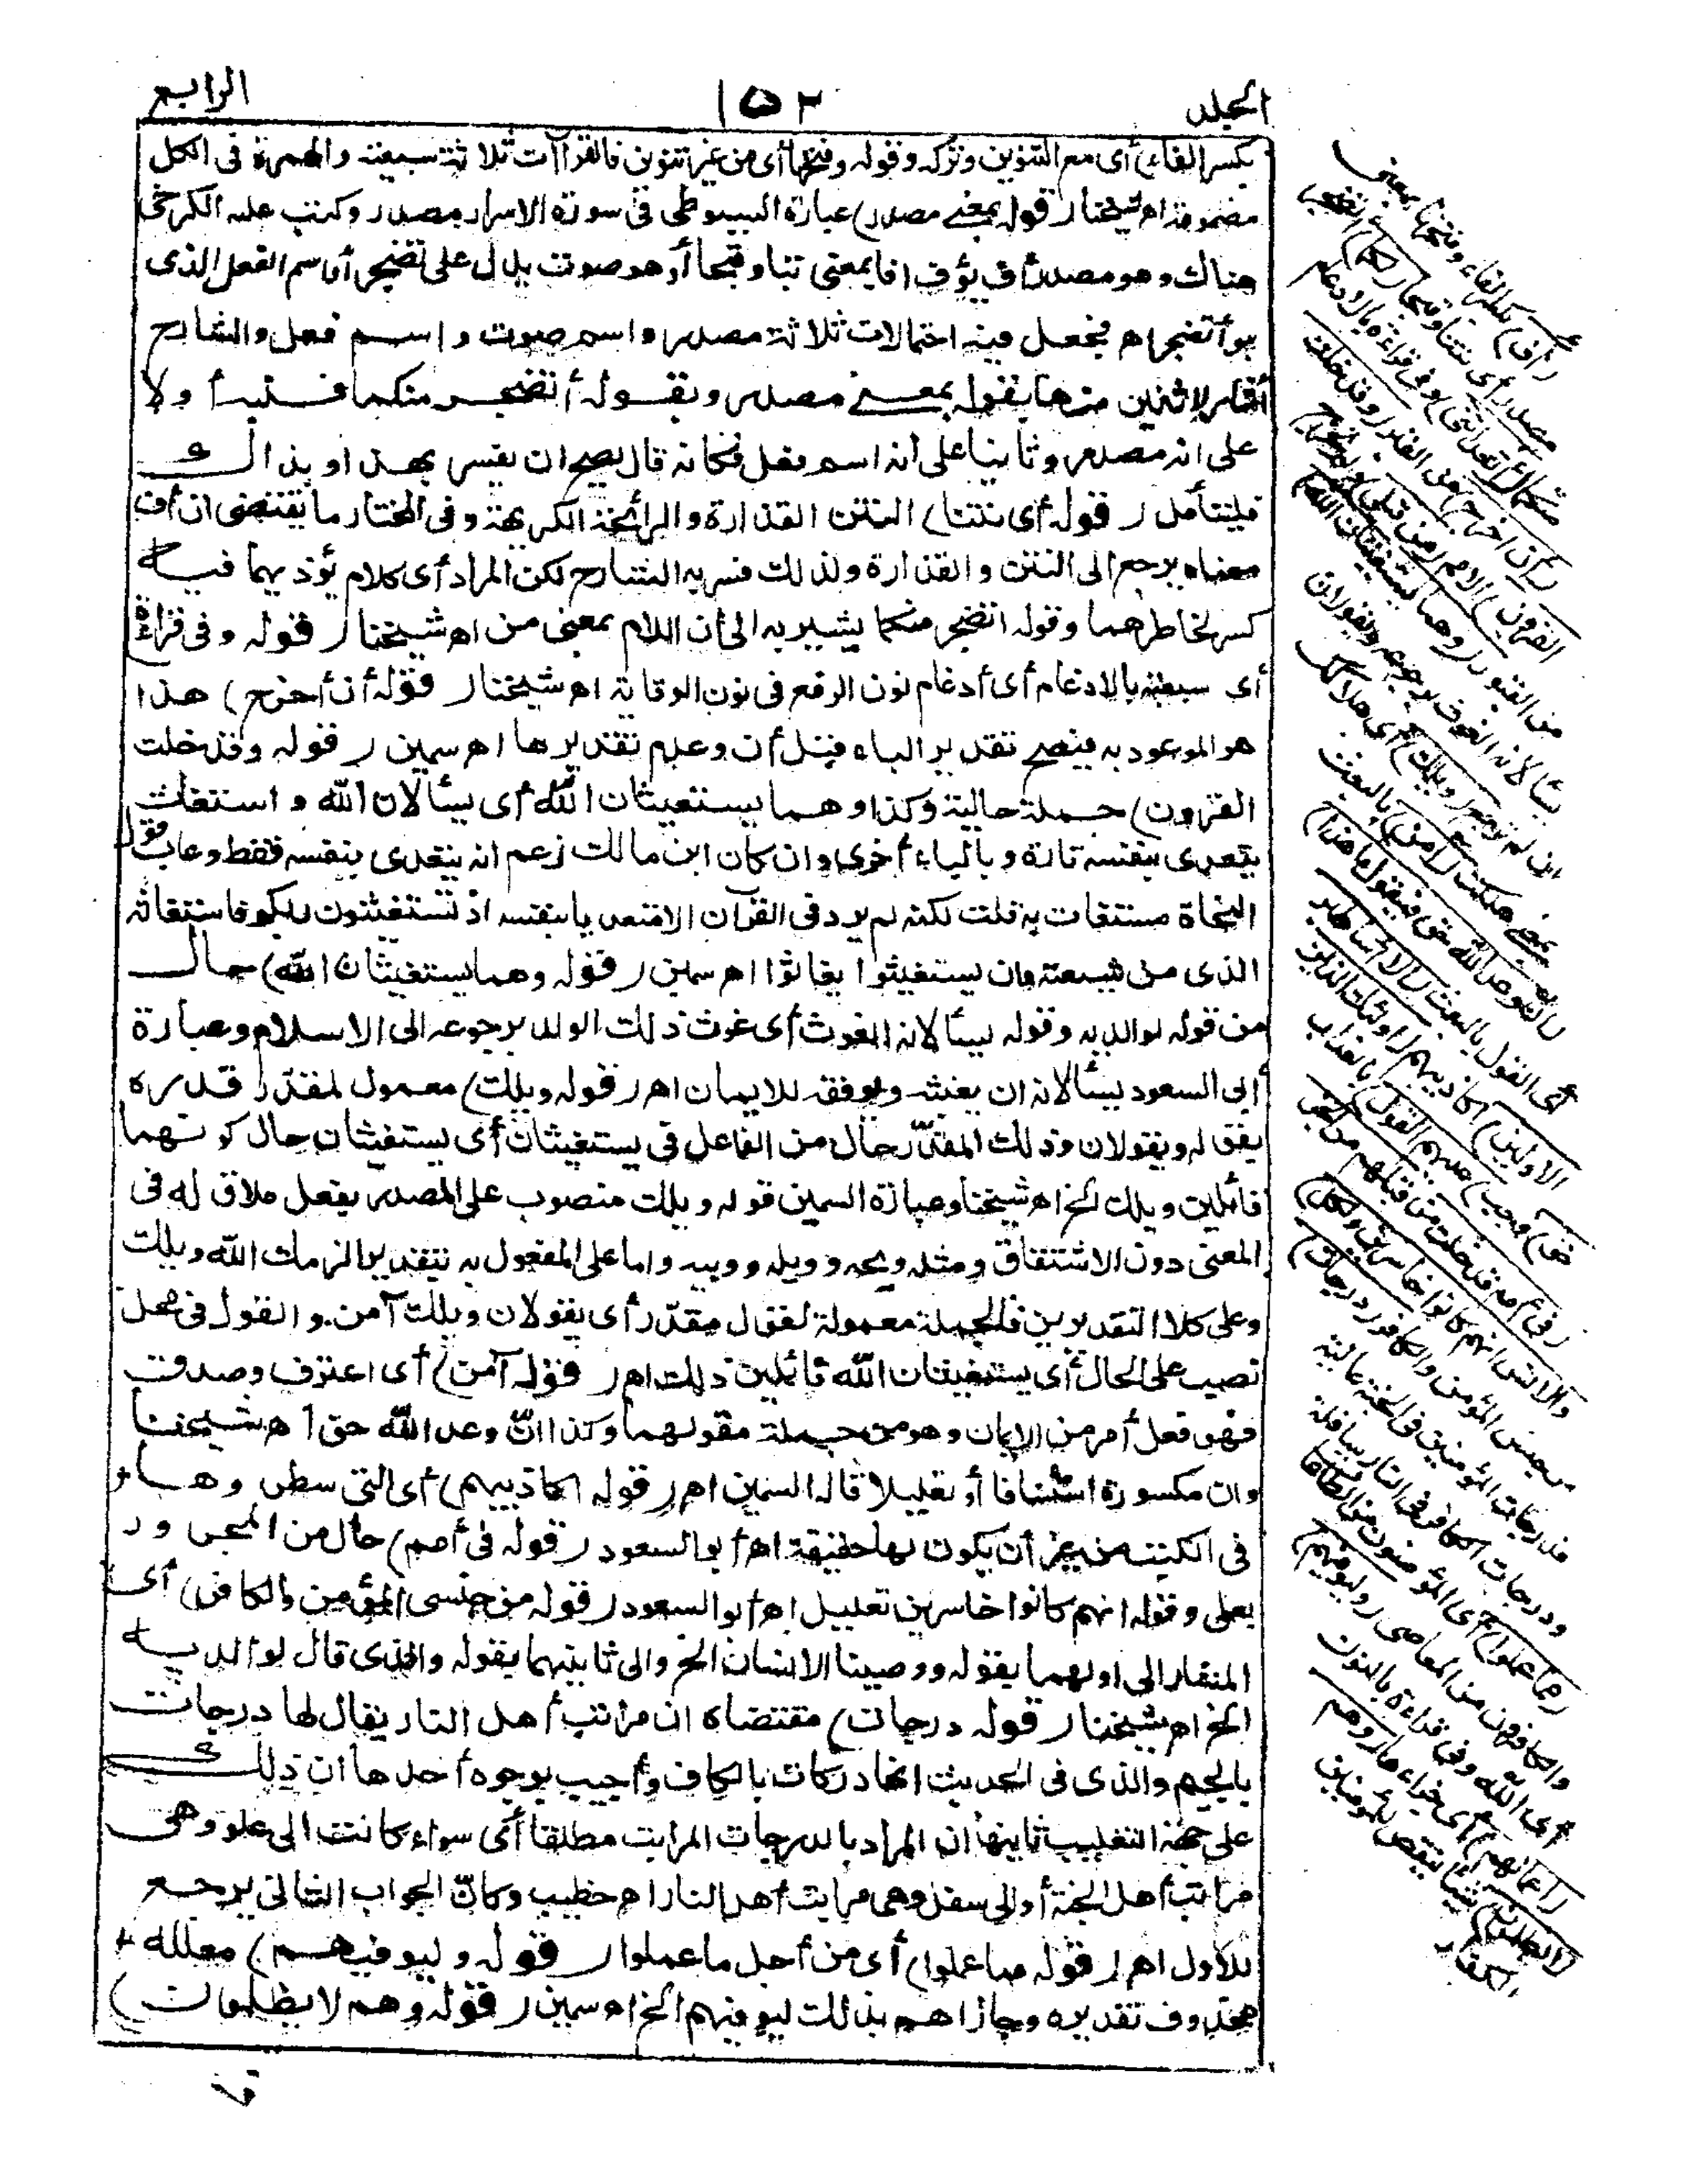 الجلد
١٥٢
الرابع
بكسر الفاء) أى مع التنوين وتركه وقوله وفتحها أى من غير تنوين فالقرا آت ثلاثة سبعية والهمزة فى الكل
مضمومة اه شيخنا ( قوله بمعنى مصدر) عبارة السيوطى فى سورة الاسراء مصدر وكتب عليه الكرخى
هناك وهو مصدر أف يؤف افا بمعنى تبا وقبحا أو هو صوت يدل على تضجر أو اسم الفعل الذى
هو أتضجر اه فجعل فيه احتمالات ثلاثة مصدر واسم صوت و اسم فعل والشارح
أفاد لاثنين منها بقوله بمعنى مصدر وبقوله أتضجر منكما فنبه أولا
على انه مصدر وثانيا على أنه اسم فعل فكأنه قال يصح ان يفسر بهذا او بذالك
فليتأمل ( قوله أى نتنا) النتن القذارة والرائحة الكريهة وفى المختار ما يقتضى ان أف
معناه يرجع الى النتن و القذارة ولذلك فسر به الشارح لكن المراد أى كلام يؤذيهما فيه
كسر لخاطرهما وقوله اتضجر منكما يشير به الى أن اللام بمعنى من اه شيخنا ( قوله وفى قراءة
أى سبعية بالادغام أى أدغام نون الرفع فى نون الوقاية اه شيخنا ( قوله أن أخرج) هذا
هو الموعود به فيصح تقدير الباء قبل أن وعدم تقديرها اه سمين ( قوله وقد خلت
القرون) جملة حالية وكذا وهما يستغيثان الله أى يسألان الله و استغاث
يتعدى بنفسه تارة و بالباء أخرى وان كان ابن مالك زعم انه يتعدى بنفسه فقط وعاب قول
النحاة مستغاث به قلت لكنه لم يرد فى القرآن الا متعديا بنفسه اذ تستغيثون ربكم فاستغاثه
الذى من شيعته وان يستغيثوا يغاثوا اه سمين ( قوله وهما يستغيثان الله) حال
من قوله لوالديه وقوله يسألانه الغوث أى غوث ذلك الولد برجوعه الى الاسلام وعبارة
أبى السعود يسألانه ان يغيثه ويوفقه للايمان اه ( قوله ويلك) معمول لمقدر قدره
بقوله ويقولان وذلك المقدر حال من الفاعل فى يستغيثان أى يستغيثان حال كونهما
قائلين ويلك الخ اه شيخنا وعبارة السمين قوله ويلك منصوب على المصدر بفعل ملاق له فى
المعنى دون الاشتقاق ومثله ويحه وويله وويبه واما على المفعول به بتقدير الزمك الله ويلك
وعلى كلا التقديرين فالجملة معمولة لقول مقدر أى يقولان ويلك آمن و القول فى محل
نصب على الحال أى يستغيثان الله قائلين ذلك اه ( قوله آمن) أى اعترف وصدق
فهو فعل أمر من الايمان وهو من جملة مقولهما وكذا انّ وعد الله حق اه شيخنا
وان مكسورة استئنافا أو تعليلا قاله السمين اه ( قوله اكاذيبهم) أى التى سطروها
فى الكتب من غير أن يكون لها حقيقة اه أبو السعود ( قوله فى أمم) حال من المجرور
بعلى وقوله انهم كانوا خاسرين تعليل اه أبو السعود ( قوله من جنسى المؤمن والكافر) أى
المشار الى اولهما بقوله ووصينا الانسان الخ والى ثانيهما بقوله والذى قال لوالديه
الخ اه شيخنا ( قوله درجات) مقتضاه ان مراتب أهل النار يقال لها درجات
بالجيم والذى فى الحديث انها دركات بالكاف وأجيب بوجوه أحدها أن ذلك
على جهة التغليب ثانيها ان المراد بالدرجات المراتب مطلقا أى سواء كانت الى علو وهى
مراتب أهل الجنة أو الى سفل وهى مراتب أهل النار اه خطيب وكأنّ الجواب الثانى يرجع
للأول اه ( قوله مما عملوا) أى من أجل ما عملوا ( قوله وليوفيهم) معلله
محذوف تقديره وجازاهم بذلك ليوفيهم الخ اه سمين ( قوله وهم لا يظلمون)
(أف) بكسر الفاء وفتحها بمعنى
مصدر أى نتنا وقبحا (لكما) أتضجر
منكما (أتعداننى) وفى قراءة بالادغام
(أن أخرج) من القبر (وقد خلت
القرون) الامم (من قبلى) ولم تخرج
من القبور (وهما يستغيثان الله)
يسألانه الغوث برجوعه ويقولان
ان لم ترجع (ويلك) أى هلاكك
بمعنى هلكت (آمن) بالبعث
(ان وعد الله حق فيقول ما هذا)
أى القول بالبعث (الا اساطير
الاولين) اكاذيبهم (اولئك الذين
حق) وجب (عليهم القول) بالعذاب
(فى أمم قد خلت من قبلهم من الجن
والانس انهم كانوا خاسرين ولكل)
من جنس المؤمن والكافر (درجات)
فدرجات المؤمنين فى الجنة عالية
ودرجات الكافر فى النار سافلة
(مما عملوا) أى المؤمنون من الطاعات
والكافرون من المعاصى (وليوفيهم)
أى الله وفى قراءة بالنون
(اعمالهم) أى جزاءها (وهم
لا يظلمون) شيئا ينقص للمؤمنين